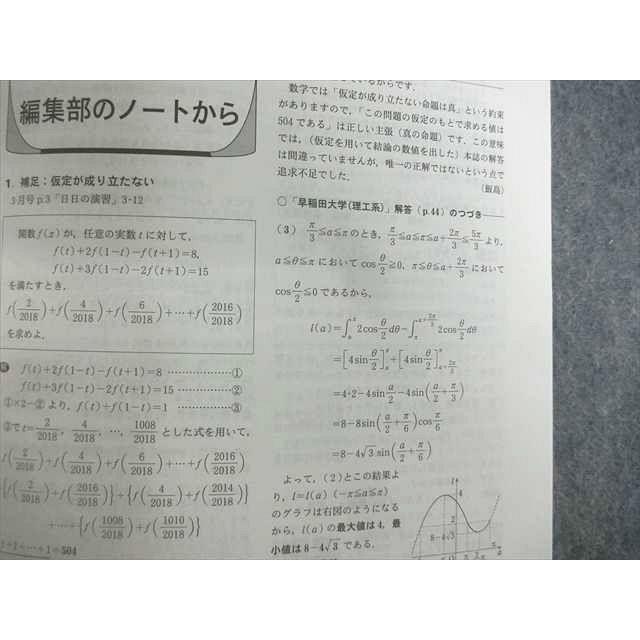 編集部のノートから
1. 補足：仮定が成り立たない
3月号p.3「日日の演習」3・12
関数f(x)が，任意の実数tに対して，
f(t)+2f(1−t)−f(t+1)=8,
f(t)+3f(1−t)−2f(t+1)=15
を満たすとき，
f(2/2018)+f(4/2018)+f(6/2018)+…+f(2016/2018)
を求めよ．
f(t)+2f(1−t)−f(t+1)=8 ………………①
f(t)+3f(1−t)−2f(t+1)=15 ……………②
①×2−②より，f(t)+f(1−t)=1 ………………③
③でt=2/2018, 4/2018, …, 1008/2018 とした式を用いて，
f(2/2018)+f(4/2018)+f(6/2018)+…+f(2016/2018)
{f(2/2018)+f(2016/2018)}+{f(4/2018)+f(2014/2018)}
+…+{f(1008/2018)+f(1010/2018)}
1+1+…+1=504
ているからです．
数学では「仮定が成り立たない命題は真」という約束
がありますので，「この問題の仮定のもとで求める値は
504である」は正しい主張（真の命題）です．この意味
では，（仮定を用いて結論の数値を出した）本誌の解答
は間違っていませんが，唯一の正解ではないという点で
追求不足でした．
（飯島）
○「早稲田大学(理工系)」解答（p.44）のつづき
（3） π/3≦a≦π のとき，π/3≦a≦π≦a+2π/3≦5π/3 より，
a≦θ≦π において cos θ/2≧0，π≦θ≦a+2π/3 において
cos θ/2≦0 であるから，
l(a)=∫_a^π 2cos θ/2 dθ−∫_π^{a+2π/3} 2cos θ/2 dθ
=[4sin θ/2]_a^π+[4sin θ/2]_{a+2π/3}^π
=4・2−4sin a/2−4sin(a/2+π/3)
=8−8sin(a/2+π/6)cos π/6
=8−4√3 sin(a/2+π/6)
よって，（2）とこの結果よ
り，l=l(a)（−π≦a≦π）
のグラフは右図のようになる
から，l(a)の最大値は4，最
小値は8−4√3 である．
l
4
2
8−4√3